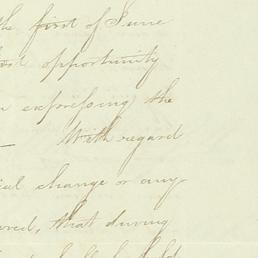 the first of June
opportunity
expressing the
— With regard
change or any
that during